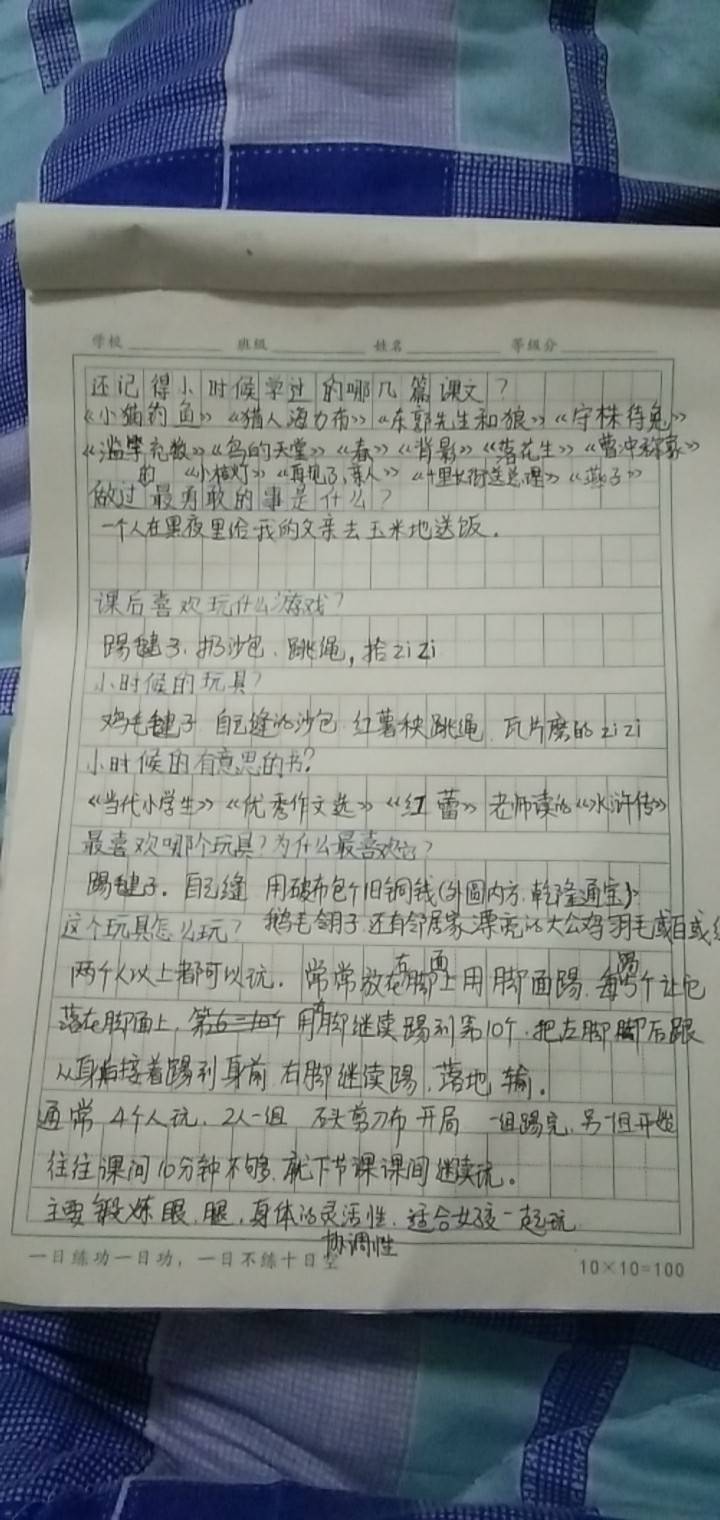 学校 班级 姓名 等级分
还记得小时候学过的哪几篇课文？
《小猫钓鱼》《猎人海力布》《东郭先生和狼》《守株待兔》
《滥竽充数》《鸟的天堂》《春》《背影》《落花生》《曹冲称象》
的 《小桔灯》《再见了，亲人》《十里长街送总理》《燕子》
做过最勇敢的事是什么？
一个人在黑夜里给我的父亲去玉米地送饭。
课后喜欢玩什么游戏？
踢毽子、扔沙包、跳绳，拾zizi
小时候的玩具？
鸡毛毽子 自己缝的沙包 红薯秧跳绳、瓦片磨的zizi
小时候的有意思的书？
《当代小学生》《优秀作文选》《红蕾》老师读的《水浒传》
最喜欢哪个玩具？为什么最喜欢它？
踢毽子。自己缝 用破布包个旧铜钱(外圆内方，乾隆通宝)
这个玩具怎么玩？ 鹅毛翎子 还有邻居家漂亮的大公鸡羽毛或白或
两个人以上都可以玩。常常放在右脚面上用脚面踢，每踢5个让它
落在脚面上，第6-10个 用右脚继续踢到第10个，把左脚脚后跟
从身后接着踢到身前 右脚继续踢，落地输。
通常4个人玩，2人一组 石头剪刀布开局 一组踢完，另一组开始
往往课间10分钟不够，就下节课课间继续玩。
主要锻炼眼、腿，身体的灵活性，适合女孩一起玩
协调性
一日练功一日功，一日不练十日空
10×10=100